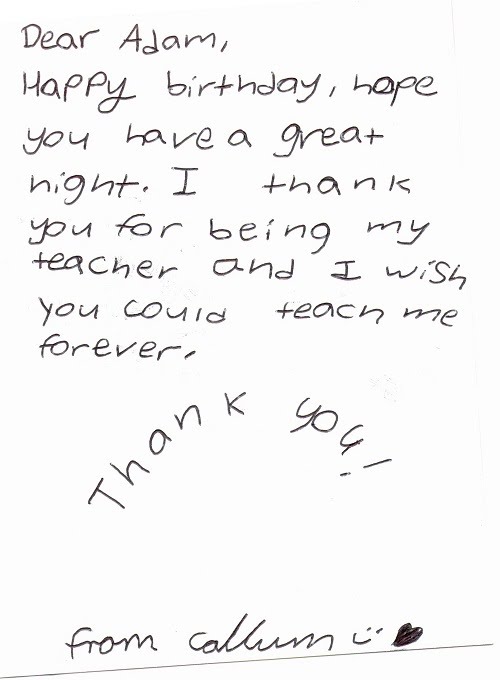 Dear Adam,
Happy birthday, hope
you have a great
night. I thank
you for being my
teacher and I wish
you could teach me
forever.
Thank you!
from Callum